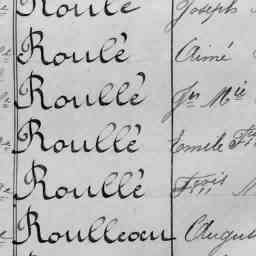 Roulé Joseph
Roulè Aimé
Roullé Jn Mie
Roullé Emile Fçs
Roullè Frois
Roulleau August